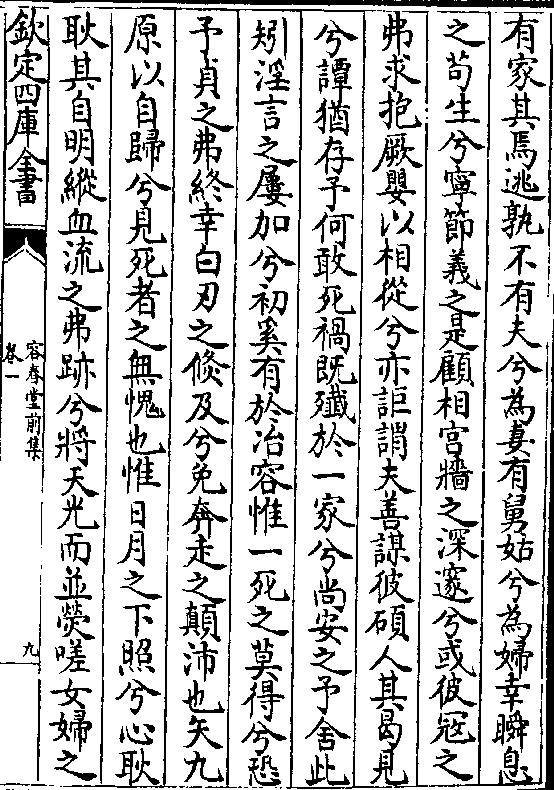 有家其焉逃孰不有夫兮為妻有舅姑兮為婦幸瞬息
之苟生兮寧節義之是顧相宫牆之深邃兮或彼冦之
弗求抱厥嬰以相從兮亦詎謂夫善謀彼碩人其曷見
兮譚猶存予何敢死禍既殲於一家兮尚安之予舍此
矧淫言之屢加兮初奚有於冶容惟一死之莫得兮恐
予貞之弗終幸白刃之倐及兮免奔走之顛沛也矢九
原以自歸兮見死者之無愧也惟日月之下照兮心耿
耿其自明縱血流之弗跡兮將天光而並熒嗟女婦之
欽定四庫全書
容春堂前集
卷一
九